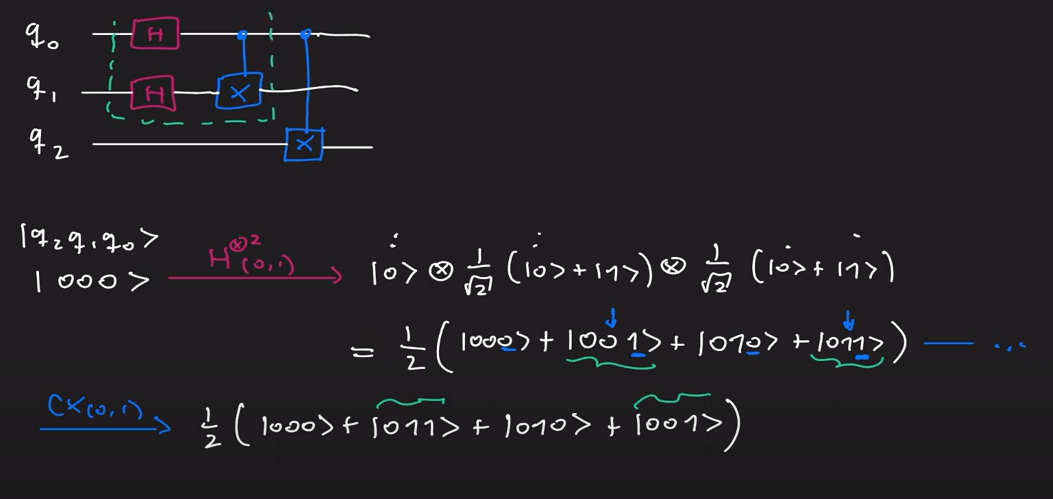 q₀ H
q₁ H X
q₂ X
|q₂q₁q₀>
|000> H^⊗2 (0,1) → |0> ⊗ 1/√2 (|0> + |1>) ⊗ 1/√2 (|0> + |1>)
= 1/2 (|000> + |001> + |010> + |011>) — ...
CX(0,1) → 1/2 (|000> + |011> + |010> + |001>)